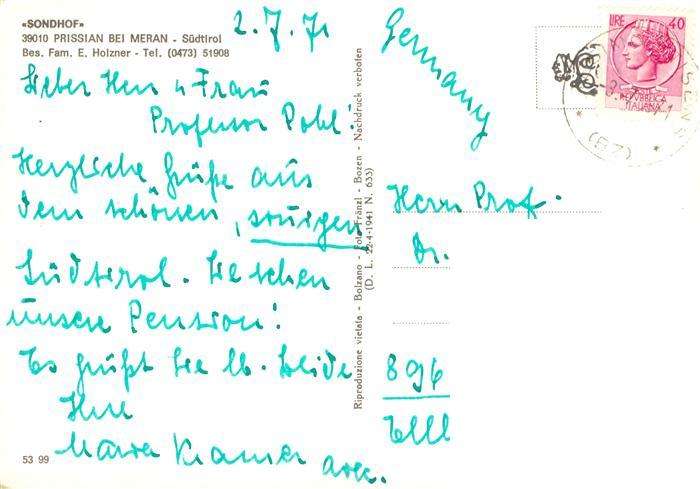 «SONDHOF»
39010 PRISSIAN BEI MERAN - Südtirol
Bes. Fam. E. Holzner - Tel. (0473) 51908
2.7.71
Lieber Herr u Frau
Professor Pohl!
Herzliche Grüße aus
dem schönen, sonnigen
Südtirol. Sie sehen
unsere Pension!
Es grüßt Sie lb. beide
Ihre
Maria Kramer
53 99
Riproduzione vietata - Bolzano - Foto Fränzl - Bozen - Nachdruck verboten
(D. L. 22-4-1941 N. 633)
Germany
LIRE 40
REPVBBLICA
ITALIANA
(BZ)
Herrn Prof.
Dr.